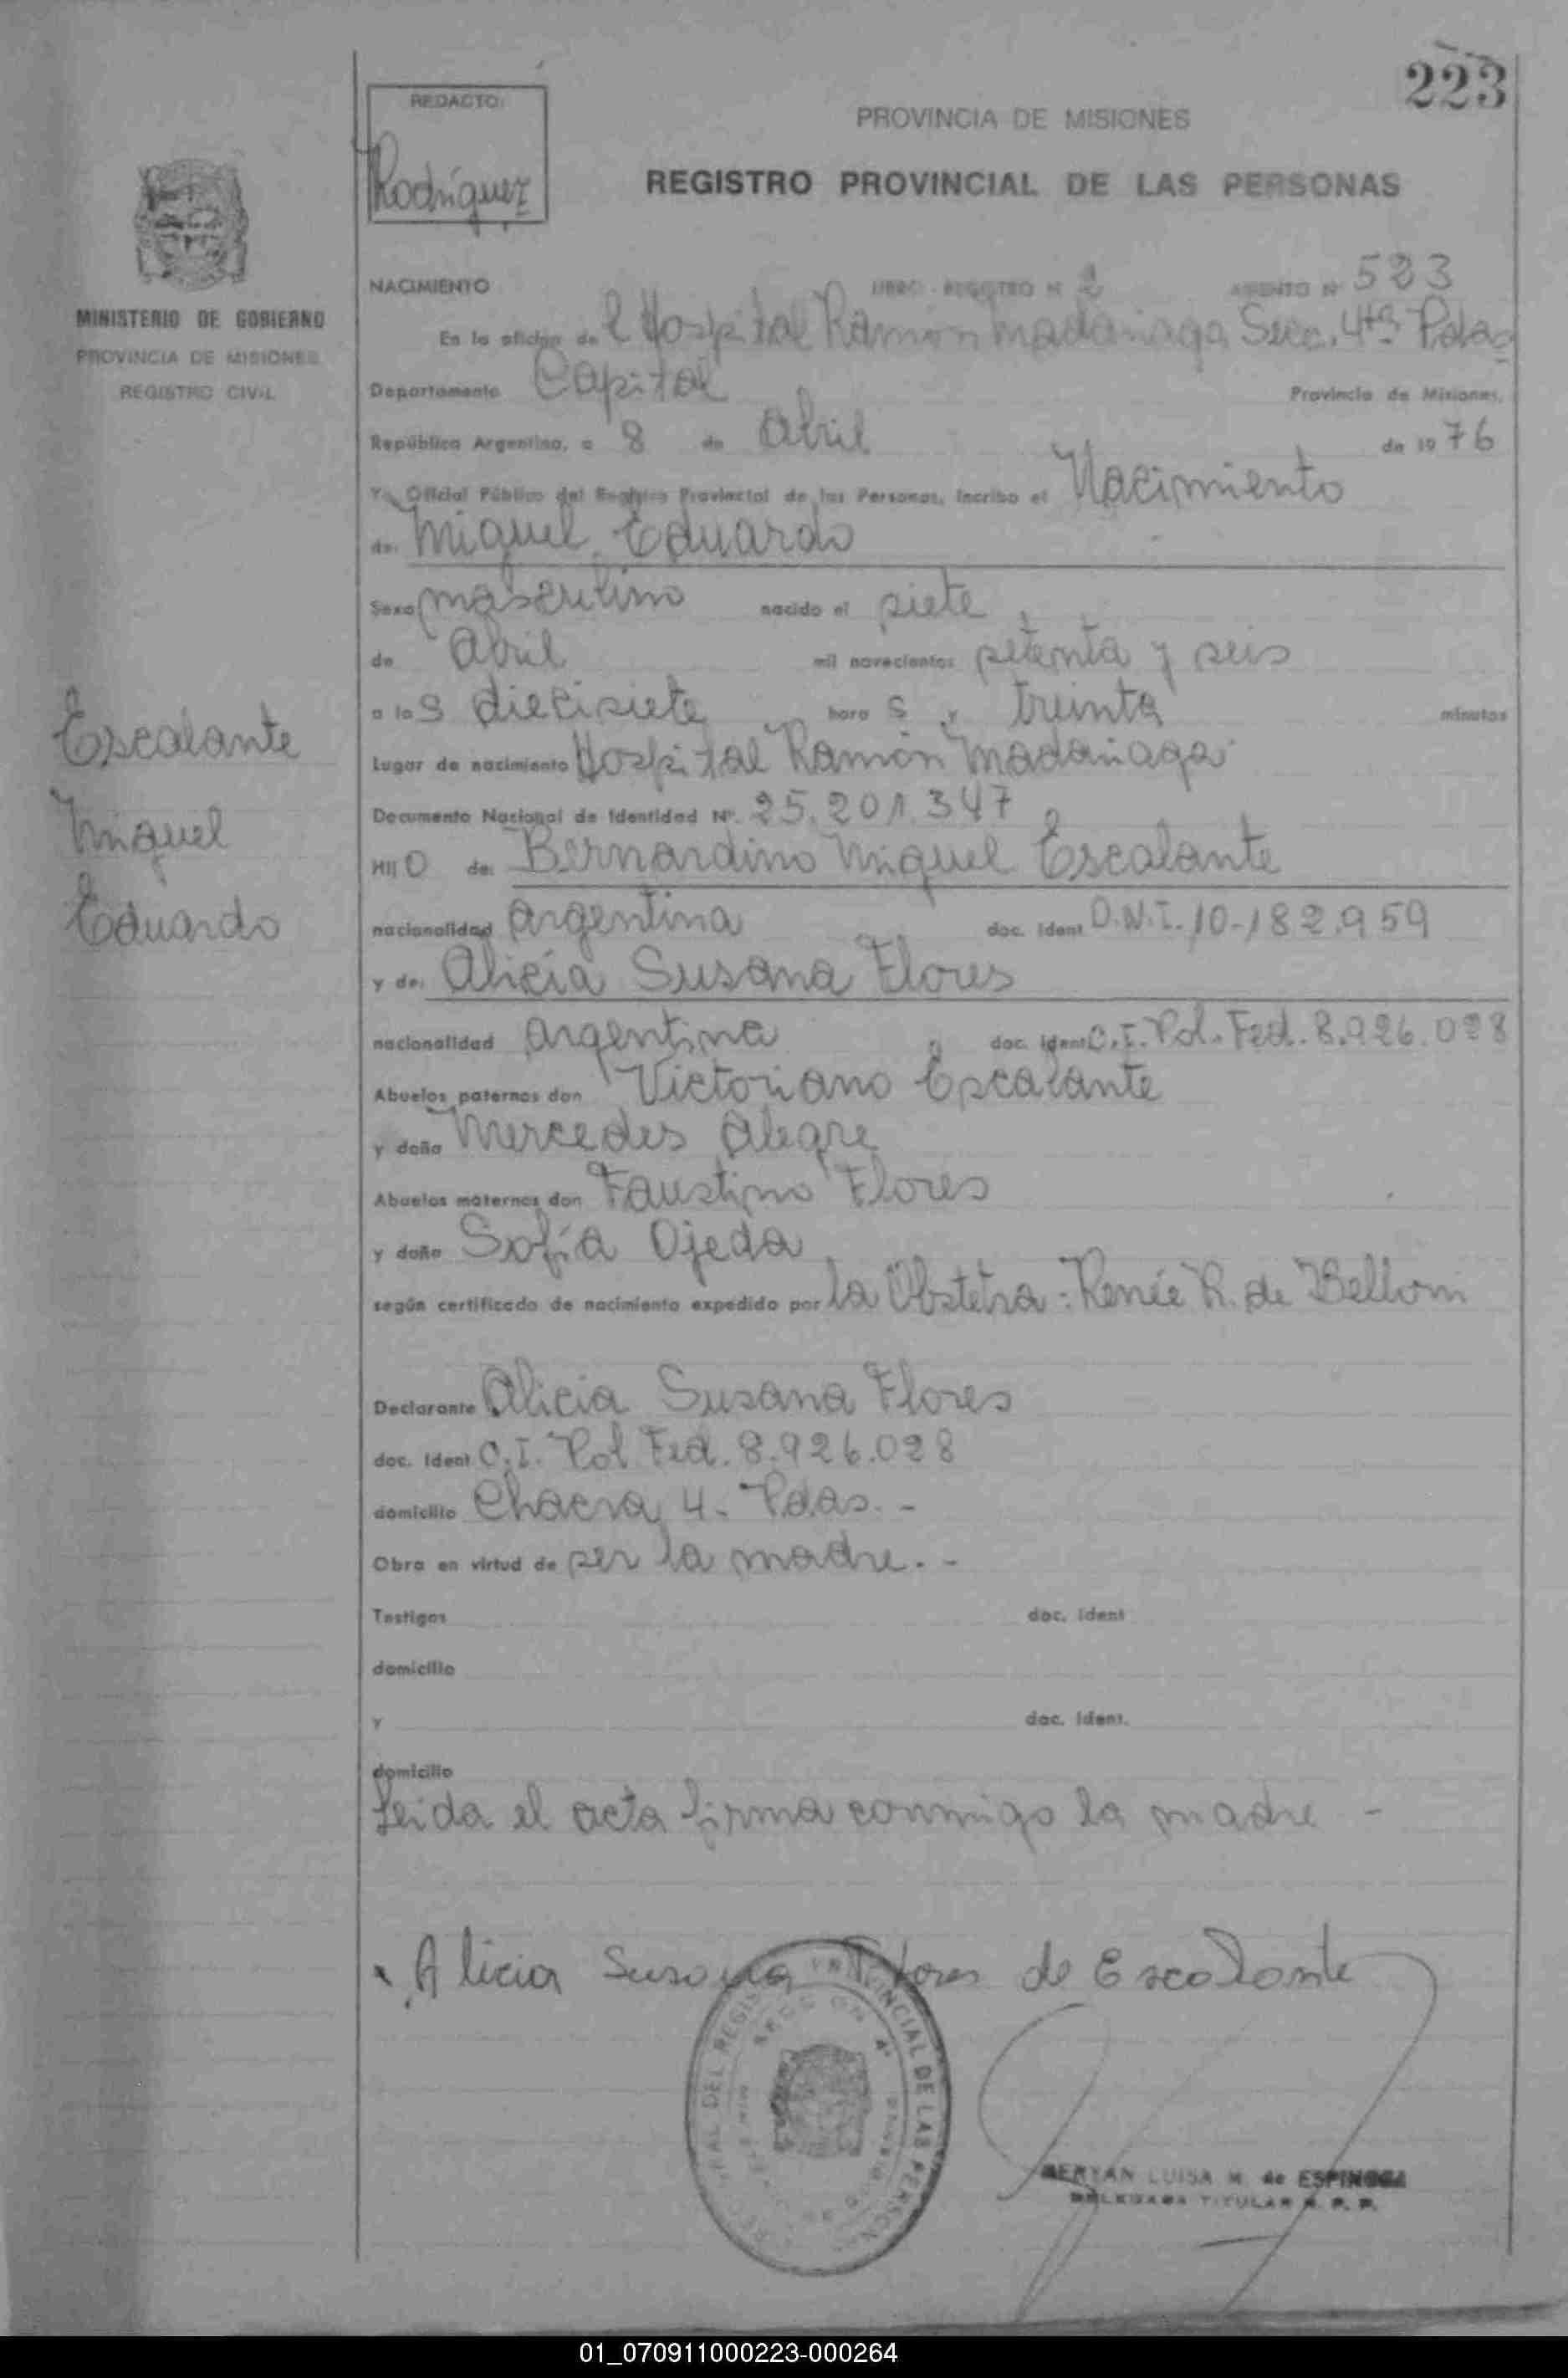 223
REDACTO:
Rodríguez
PROVINCIA DE MISIONES
REGISTRO PROVINCIAL DE LAS PERSONAS
MINISTERIO DE GOBIERNO
PROVINCIA DE MISIONES
REGISTRO CIVIL
NACIMIENTO LIBRO - REGISTRO Nº 2 ASIENTO Nº 523
En la oficina de l Hospital Ramón Madariaga Secc. 4ta Pdas
Departamento Capital Provincia de Misiones,
República Argentina, a 8 de Abril de 19 76
Yo, Oficial Público del Registro Provincial de las Personas, inscribo el Nacimiento
de: Miguel Eduardo
Sexo masculino nacido el siete
de Abril mil novecientos setenta y seis
a las diecisiete hora s y treinta minutos
Lugar de nacimiento Hospital Ramón Madariaga
Documento Nacional de Identidad Nº. 25.201.347
Hij o de: Bernardino Miguel Escalante
nacionalidad argentina doc. Ident D.N.I. 10.182.959
y de: Alicia Susana Flores
nacionalidad argentina doc. Ident C.I. Pol. Fed. 8.926.028
Abuelos paternos don Victoriano Escalante
y doña Mercedes Alegre
Abuelos maternos don Faustino Flores
y doña Sofía Ojeda
según certificado de nacimiento expedido por la Obstetra: Renée R. de Belloni
Declarante Alicia Susana Flores
doc. Ident C.I. Pol Fed. 8.926.028
domicilio Chacra 4 - Pdas. -
Obra en virtud de ser la madre. -
Testigos doc. Ident
domicilio
y doc. Ident.
domicilio
Leida el acta firma conmigo la madre -
Escalante
Miguel
Eduardo
Alicia Susana Flores de Escalante
PROVINCIAL DE LAS PERSON
LUISA M. de ESPINOSA
DELEGADA TITULAR R. P. P.
01_070911000223-000264